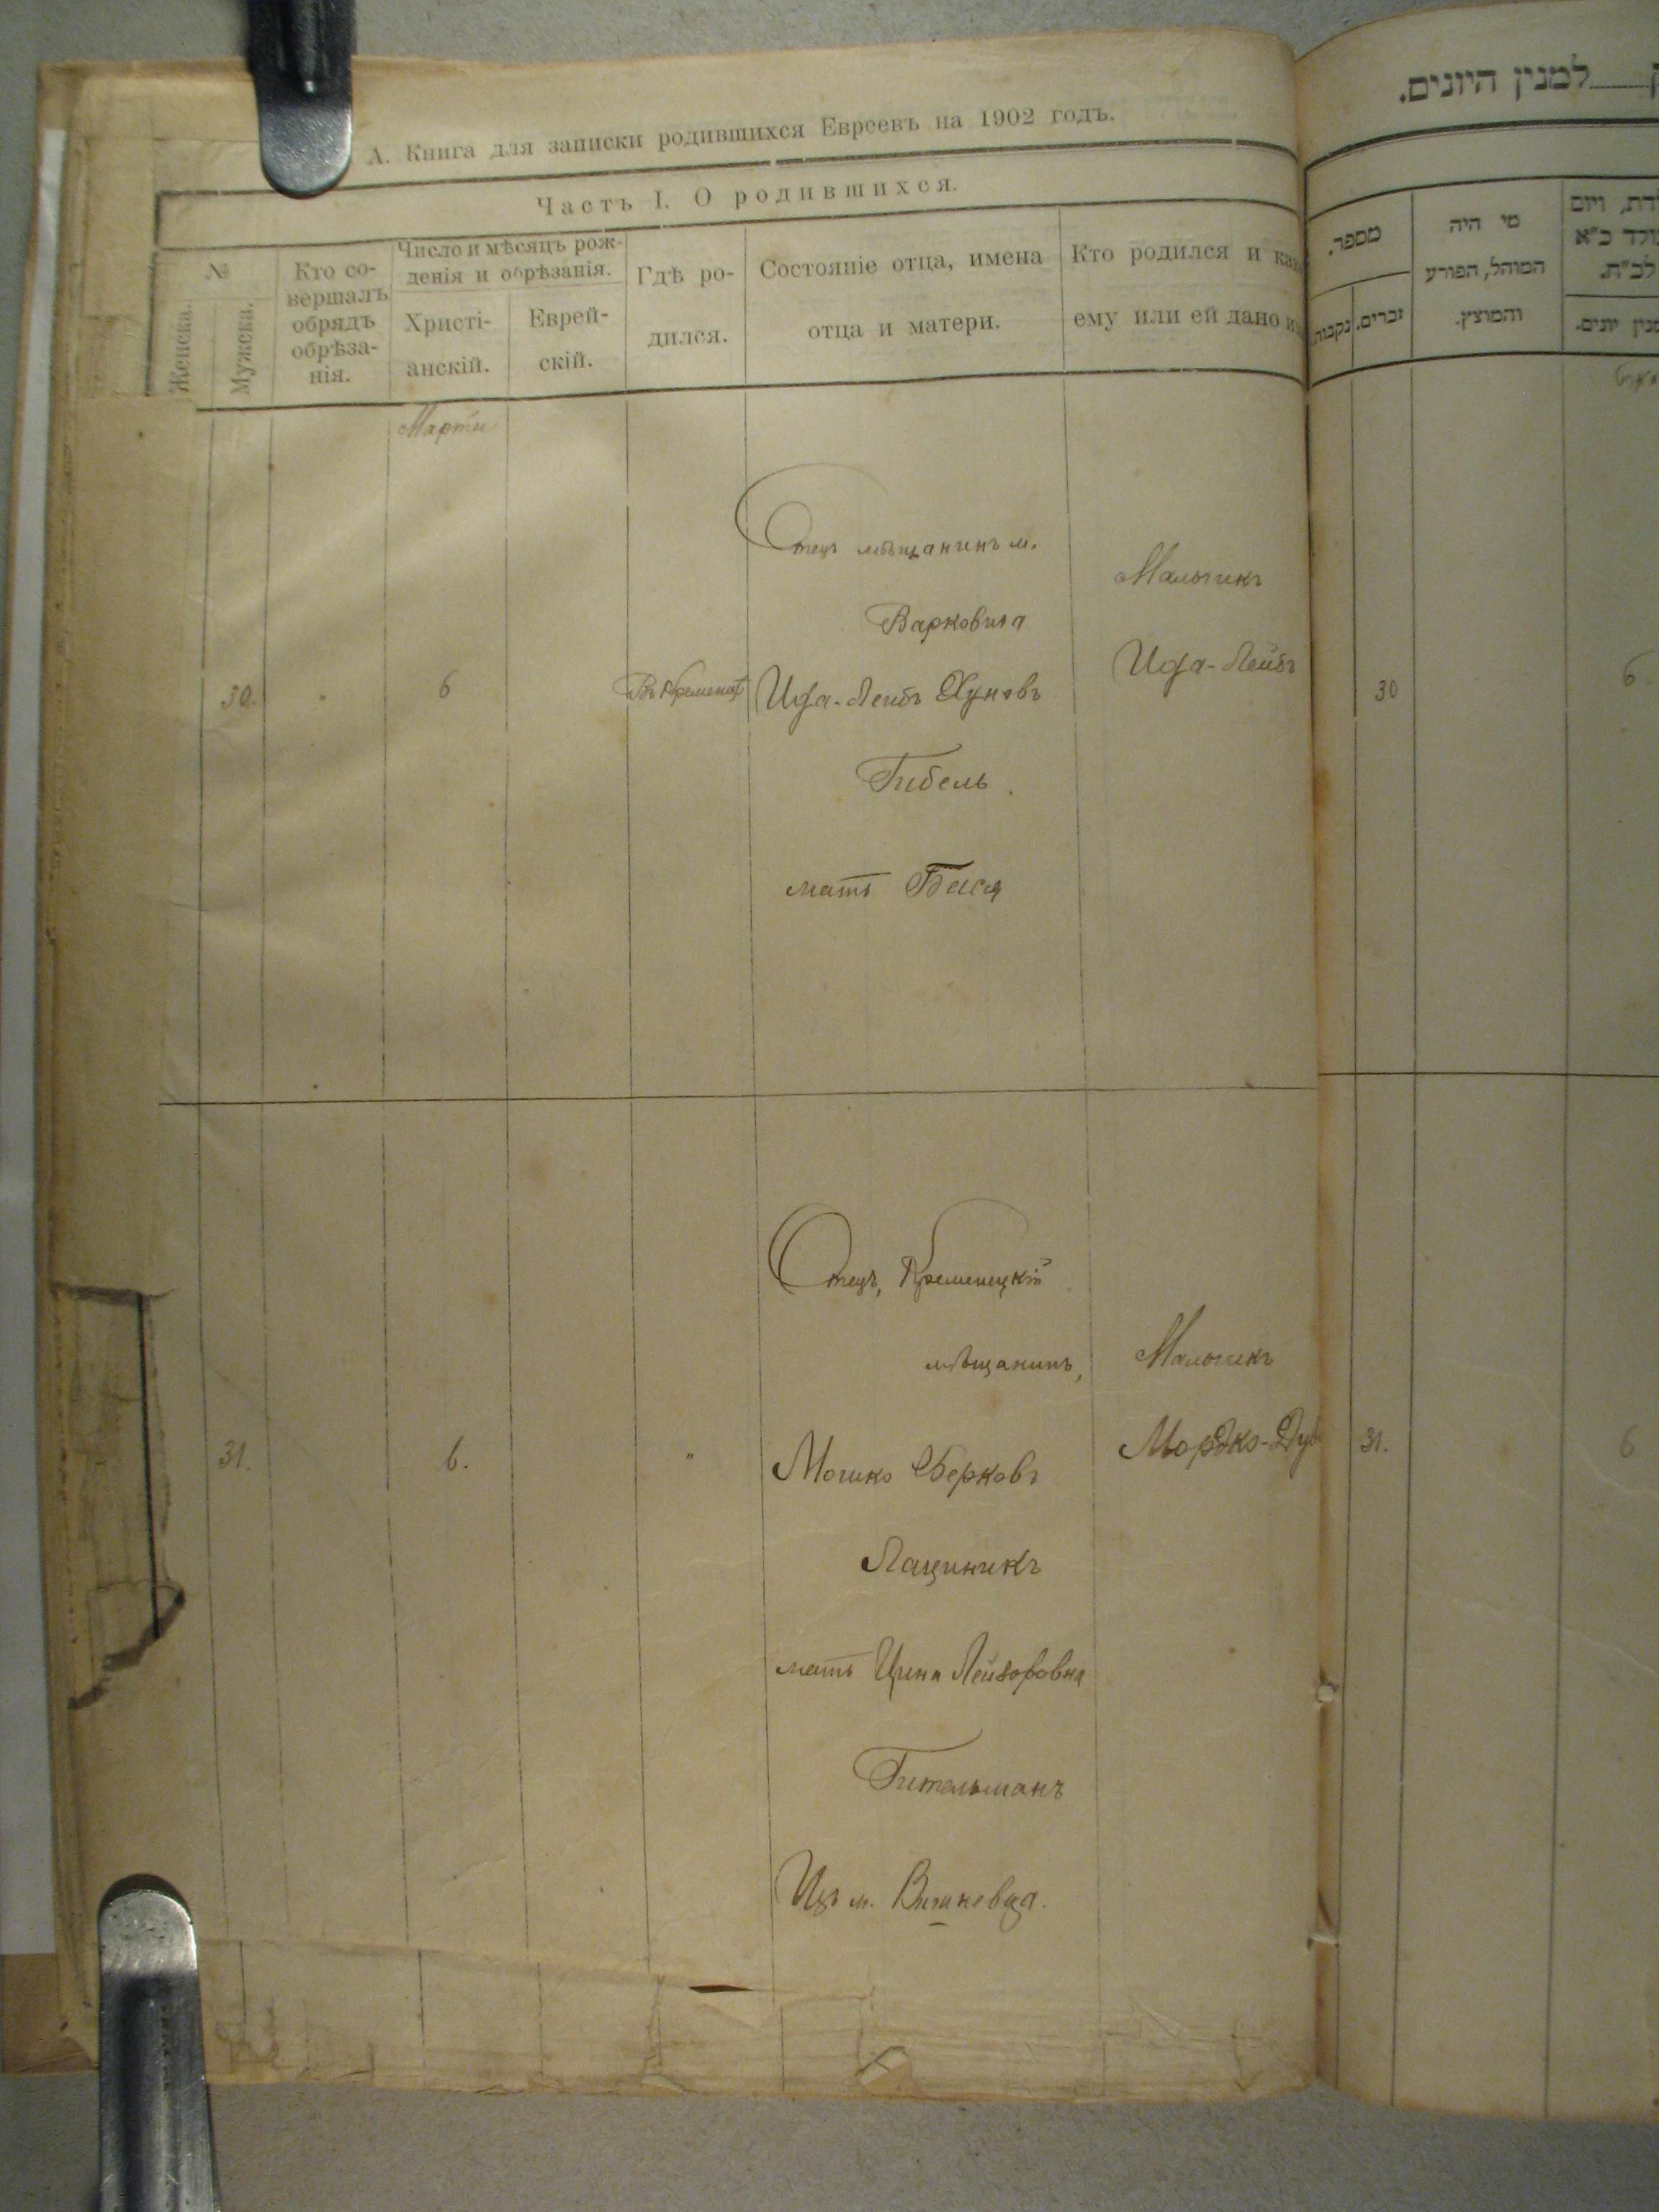 А. Книга для записки родившихся Евреевъ на 1902 годъ.
Часть I. О родившихся.
№
Женска.
Мужска.
Кто со-
вершалъ
обрядъ
обрѣза-
нія.
Число и мѣсяцъ рож-
денія и обрѣзанія.
Христі-
анскій.
Еврей-
скій.
Гдѣ ро-
дился.
Состояніе отца, имена
отца и матери.
Кто родился и
ему или ей дано
Марта
30.
6
Въ Кременцѣ
Отецъ мѣщанинъ м.
Варковича
Ида-Лейбъ Хуновъ
Гибель.
мать Бася
Мальчикъ
Ида-Лейбъ
31.
6.
"
Отецъ, Кременецкій
мѣщанинъ,
Мошко Берковъ
Лациникъ
мать Цина Лейзоровна
Гительманъ
Изъ м. Вишневца.
Мальчикъ
Мордко-
למנין היונים.
מספר.
נקבות.
זכרים.
מי היה
המוהל, הפורע
והמוצץ.
ויום
כ"א
לכ"ת.
יונים.
30
6.
31.
6